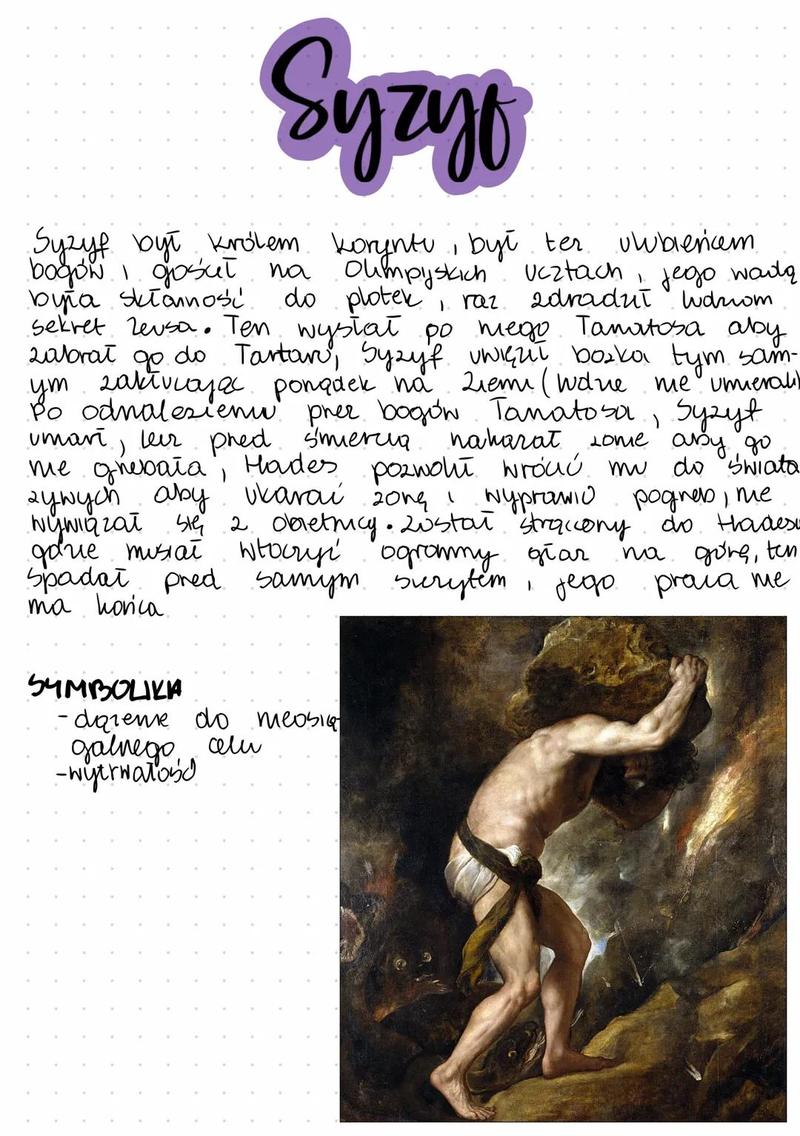 Syzyf
Syzyf był królem koryntu, był też ulubieńcem
bogów i gościł na Olimpijskich ucztach, jego wadą
była skłonność do plotek, raz zdradził ludziom
sekret Zeusa. Ten wysłał po niego Tanatosa aby
zabrał go do Tartaru, Syzyf uwięził bożka tym sam-
ym zakłócając porządek na Ziemi (ludzie nie umierali)
Po odnalezieniu przez bogów Tanatosa, Syzyf
umarł, lecz przed śmiercią nakazał żonie aby go
nie grzebała, Hades pozwolił wrócić mu do świata
żywych aby ukarać żonę i wyprawić pogrzeb, nie
wywiązał się z obietnicy. Został strącony do Hadesu
gdzie musiał wtoczyć ogromny głaz na górę, ten
spadał przed samym szczytem, jego praca nie
ma końca
SYMBOLIKA
- dążenie do nieosią
galnego celu
- wytrwałość